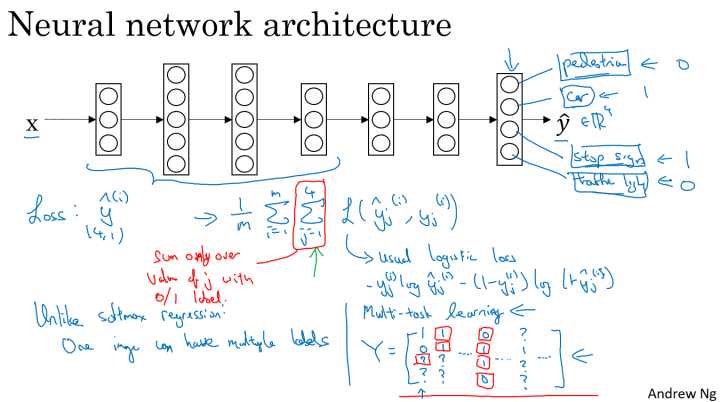 Neural network architecture
pedestrian ← 0
car ← 1
x
ŷ ∈ ℝ⁴
stop sign ← 1
traffic light ← 0
Loss: ŷ⁽ⁱ⁾ → 1/m Σᵢ₌₁ᵐ Σⱼ₌₁⁴ L(ŷⱼ⁽ⁱ⁾, yⱼ⁽ⁱ⁾)
(4,1)
sum only over
value of j with
0/1 label.
usual logistic loss
-yⱼ⁽ⁱ⁾ log ŷⱼ⁽ⁱ⁾ - (1-yⱼ⁽ⁱ⁾) log (1-ŷⱼ⁽ⁱ⁾)
Unlike softmax regression:
One image can have multiple labels
Multi-task learning ←
1 1 0 ?
Y = 0 1 ... 1 ... 1 ... ←
? ? 1 ?
? ? 0 ?
Andrew Ng